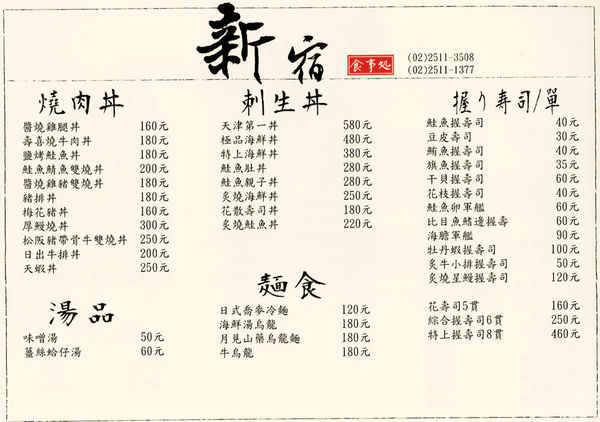 新宿
食事処
(02)2511-3508
(02)2511-1377
燒肉丼
醬燒雞腿丼 160元
壽喜燒牛肉丼 180元
鹽烤鮭魚丼 180元
鮭魚鯖魚雙燒丼 200元
醬燒雞豬雙燒丼 180元
豬排丼 180元
梅花豬丼 160元
厚鰻燒丼 300元
松阪豬帶骨牛雙燒丼 250元
日出牛排丼 200元
天蝦丼 250元
湯品
味噌湯 50元
薑絲蛤仔湯 60元
刺生丼
天津第一丼 580元
極品海鮮丼 480元
特上海鮮丼 380元
鮭魚肚丼 280元
鮭魚親子丼 280元
炙燒海鮮丼 250元
花散壽司丼 180元
炙燒鮭魚丼 220元
麵食
日式喬麥冷麵 120元
海鮮湯烏龍 180元
月見山藥烏龍麵 180元
牛烏龍 180元
握り寿司/單
鮭魚握壽司 40元
豆皮壽司 30元
鮪魚握壽司 40元
旗魚握壽司 35元
干貝握壽司 60元
花枝握壽司 40元
鮭魚卵軍艦 60元
比目魚鰭邊握壽 60元
海膽軍艦 90元
牡丹蝦握壽司 100元
炙牛小排握壽司 50元
炙燒星鰻握壽司 120元
花壽司5貫 160元
綜合握壽司6貫 250元
特上握壽司8貫 460元